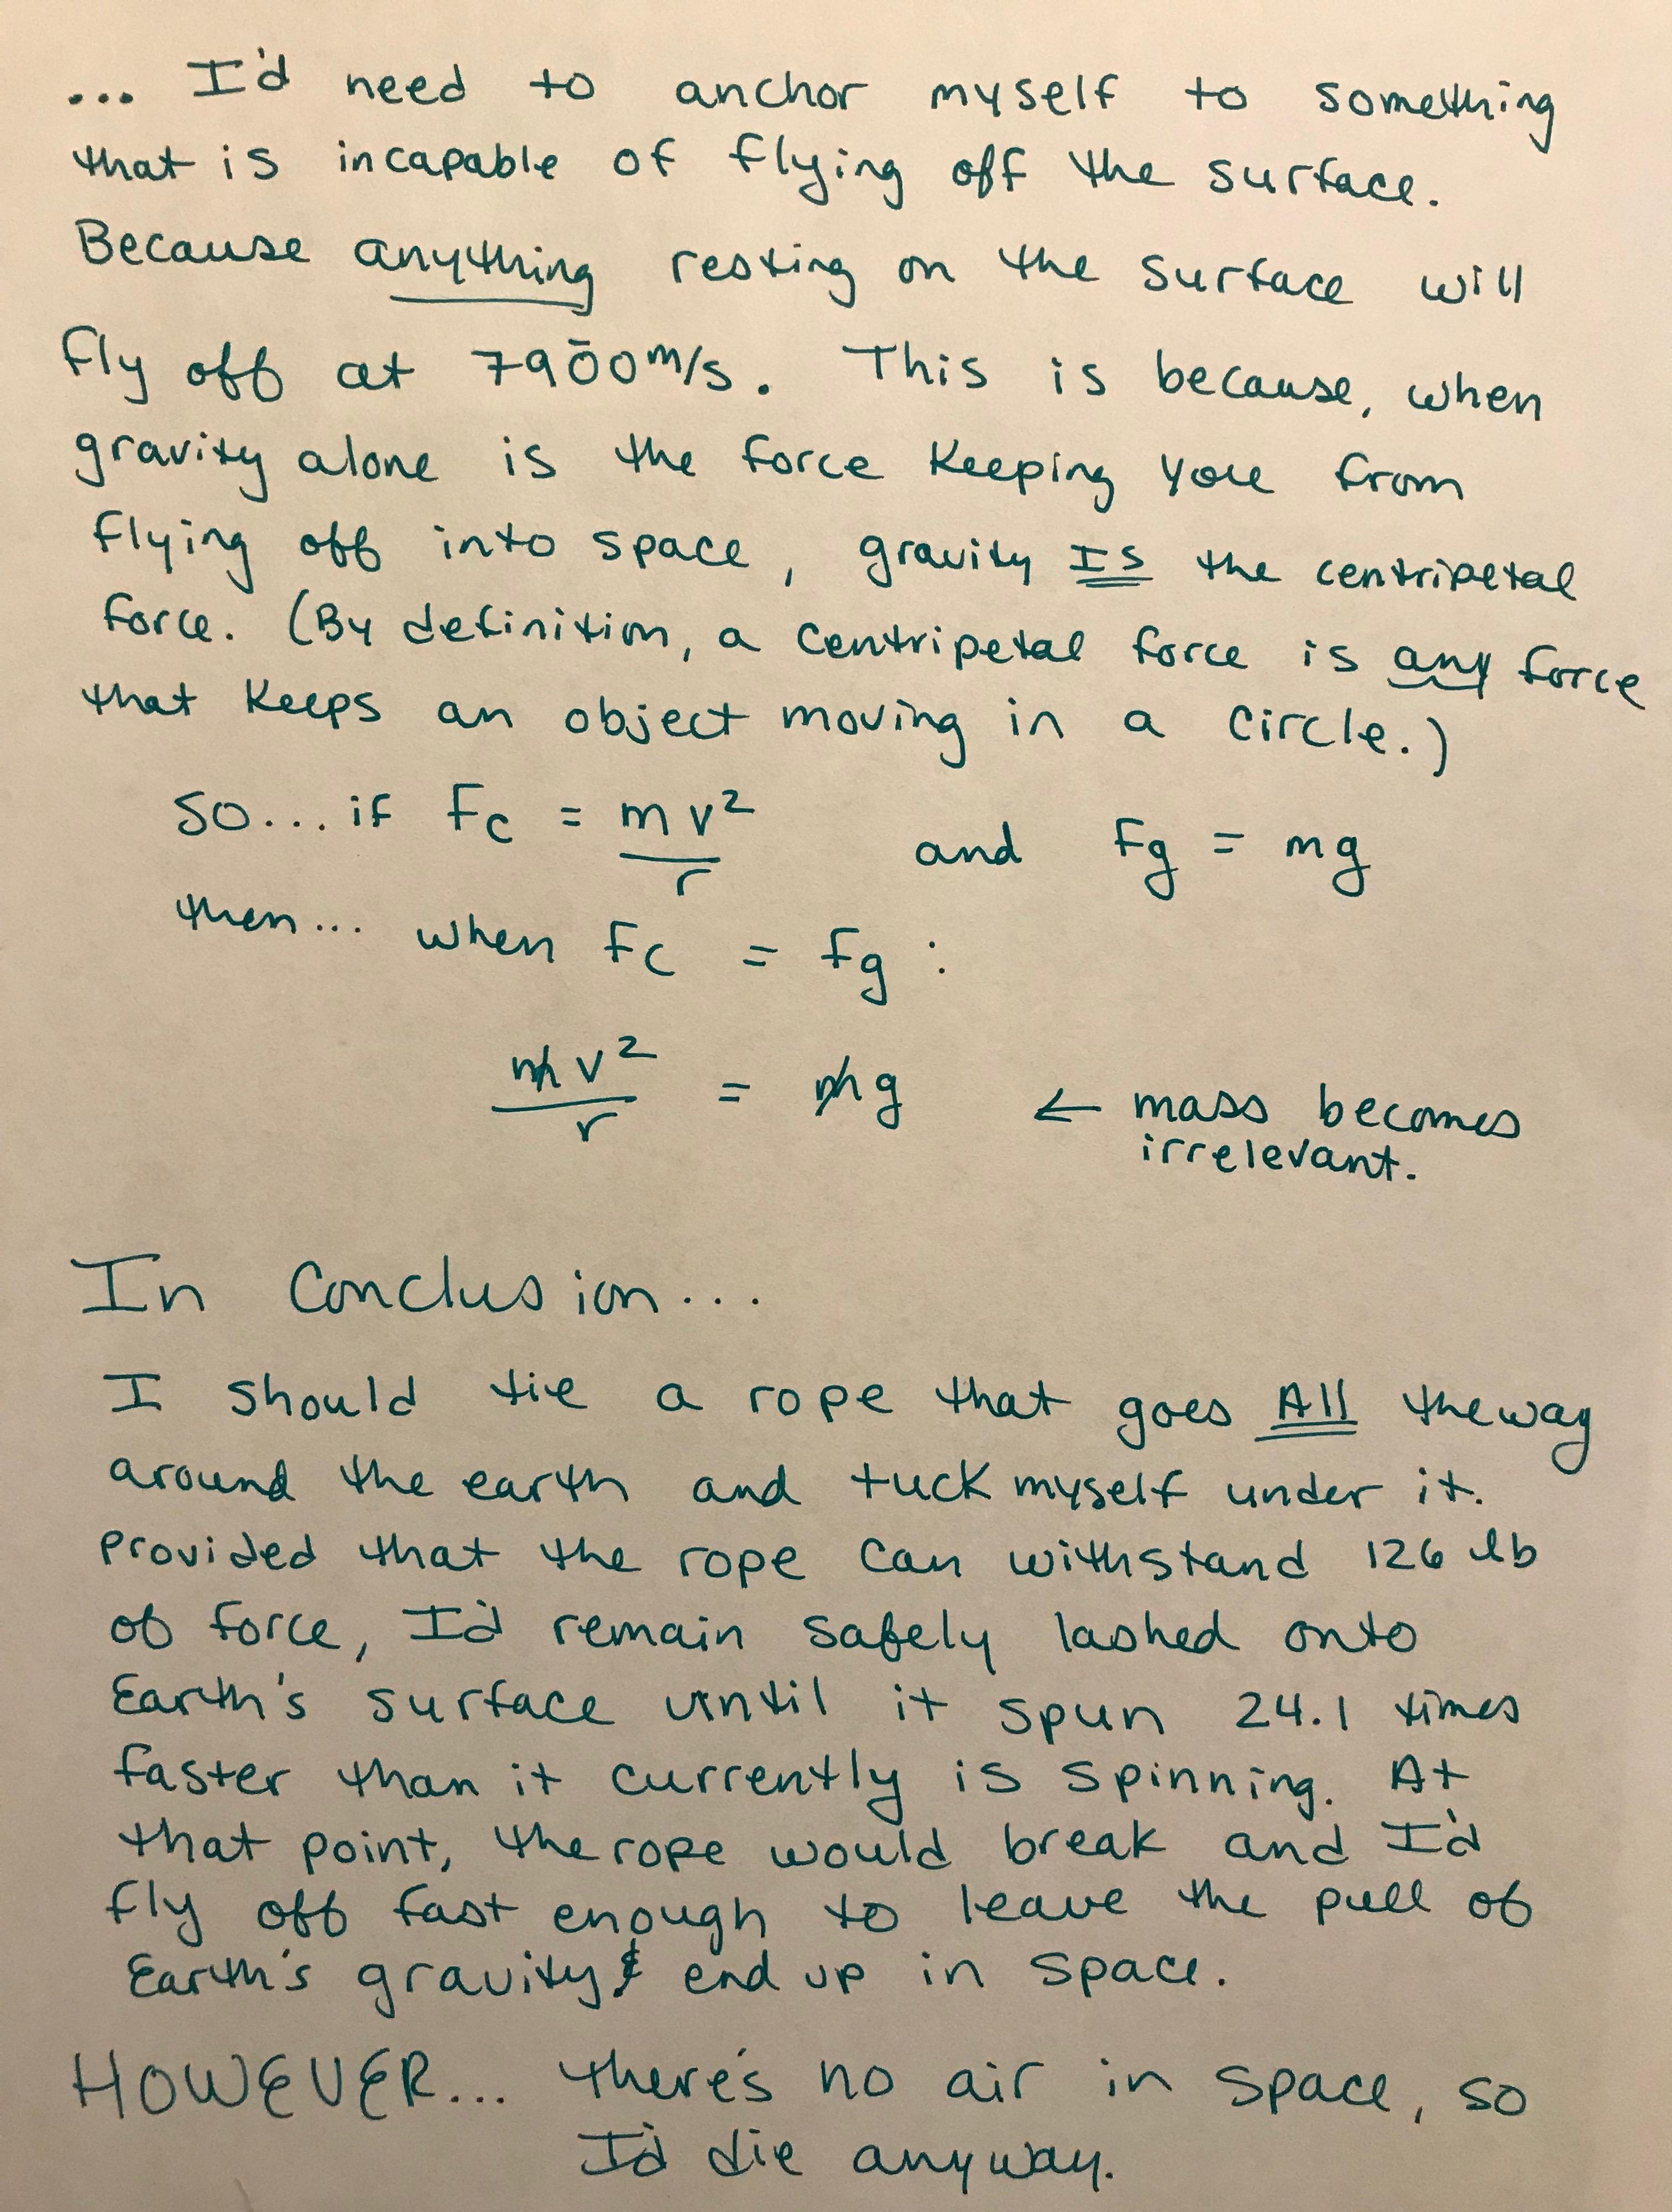 ... I'd need to anchor myself to something
that is incapable of flying off the surface.
Because anything resting on the surface will
fly off at 79ō0 m/s. This is because, when
gravity alone is the force keeping you from
flying off into space, gravity IS the centripetal
force. (By definition, a centripetal force is any force
that keeps an object moving in a circle.)
So... if Fc = mv²/r and Fg = mg
then... when Fc = Fg :
mv²/r = mg ← mass becomes
irrelevant.
In Conclusion...
I should tie a rope that goes All the way
around the earth and tuck myself under it.
Provided that the rope can withstand 126 lb
of force, I'd remain safely lashed onto
Earth's surface until it spun 24.1 times
faster than it currently is spinning. At
that point, the rope would break and I'd
fly off fast enough to leave the pull of
Earth's gravity & end up in space.
HOWEVER... there's no air in space, so
I'd die anyway.